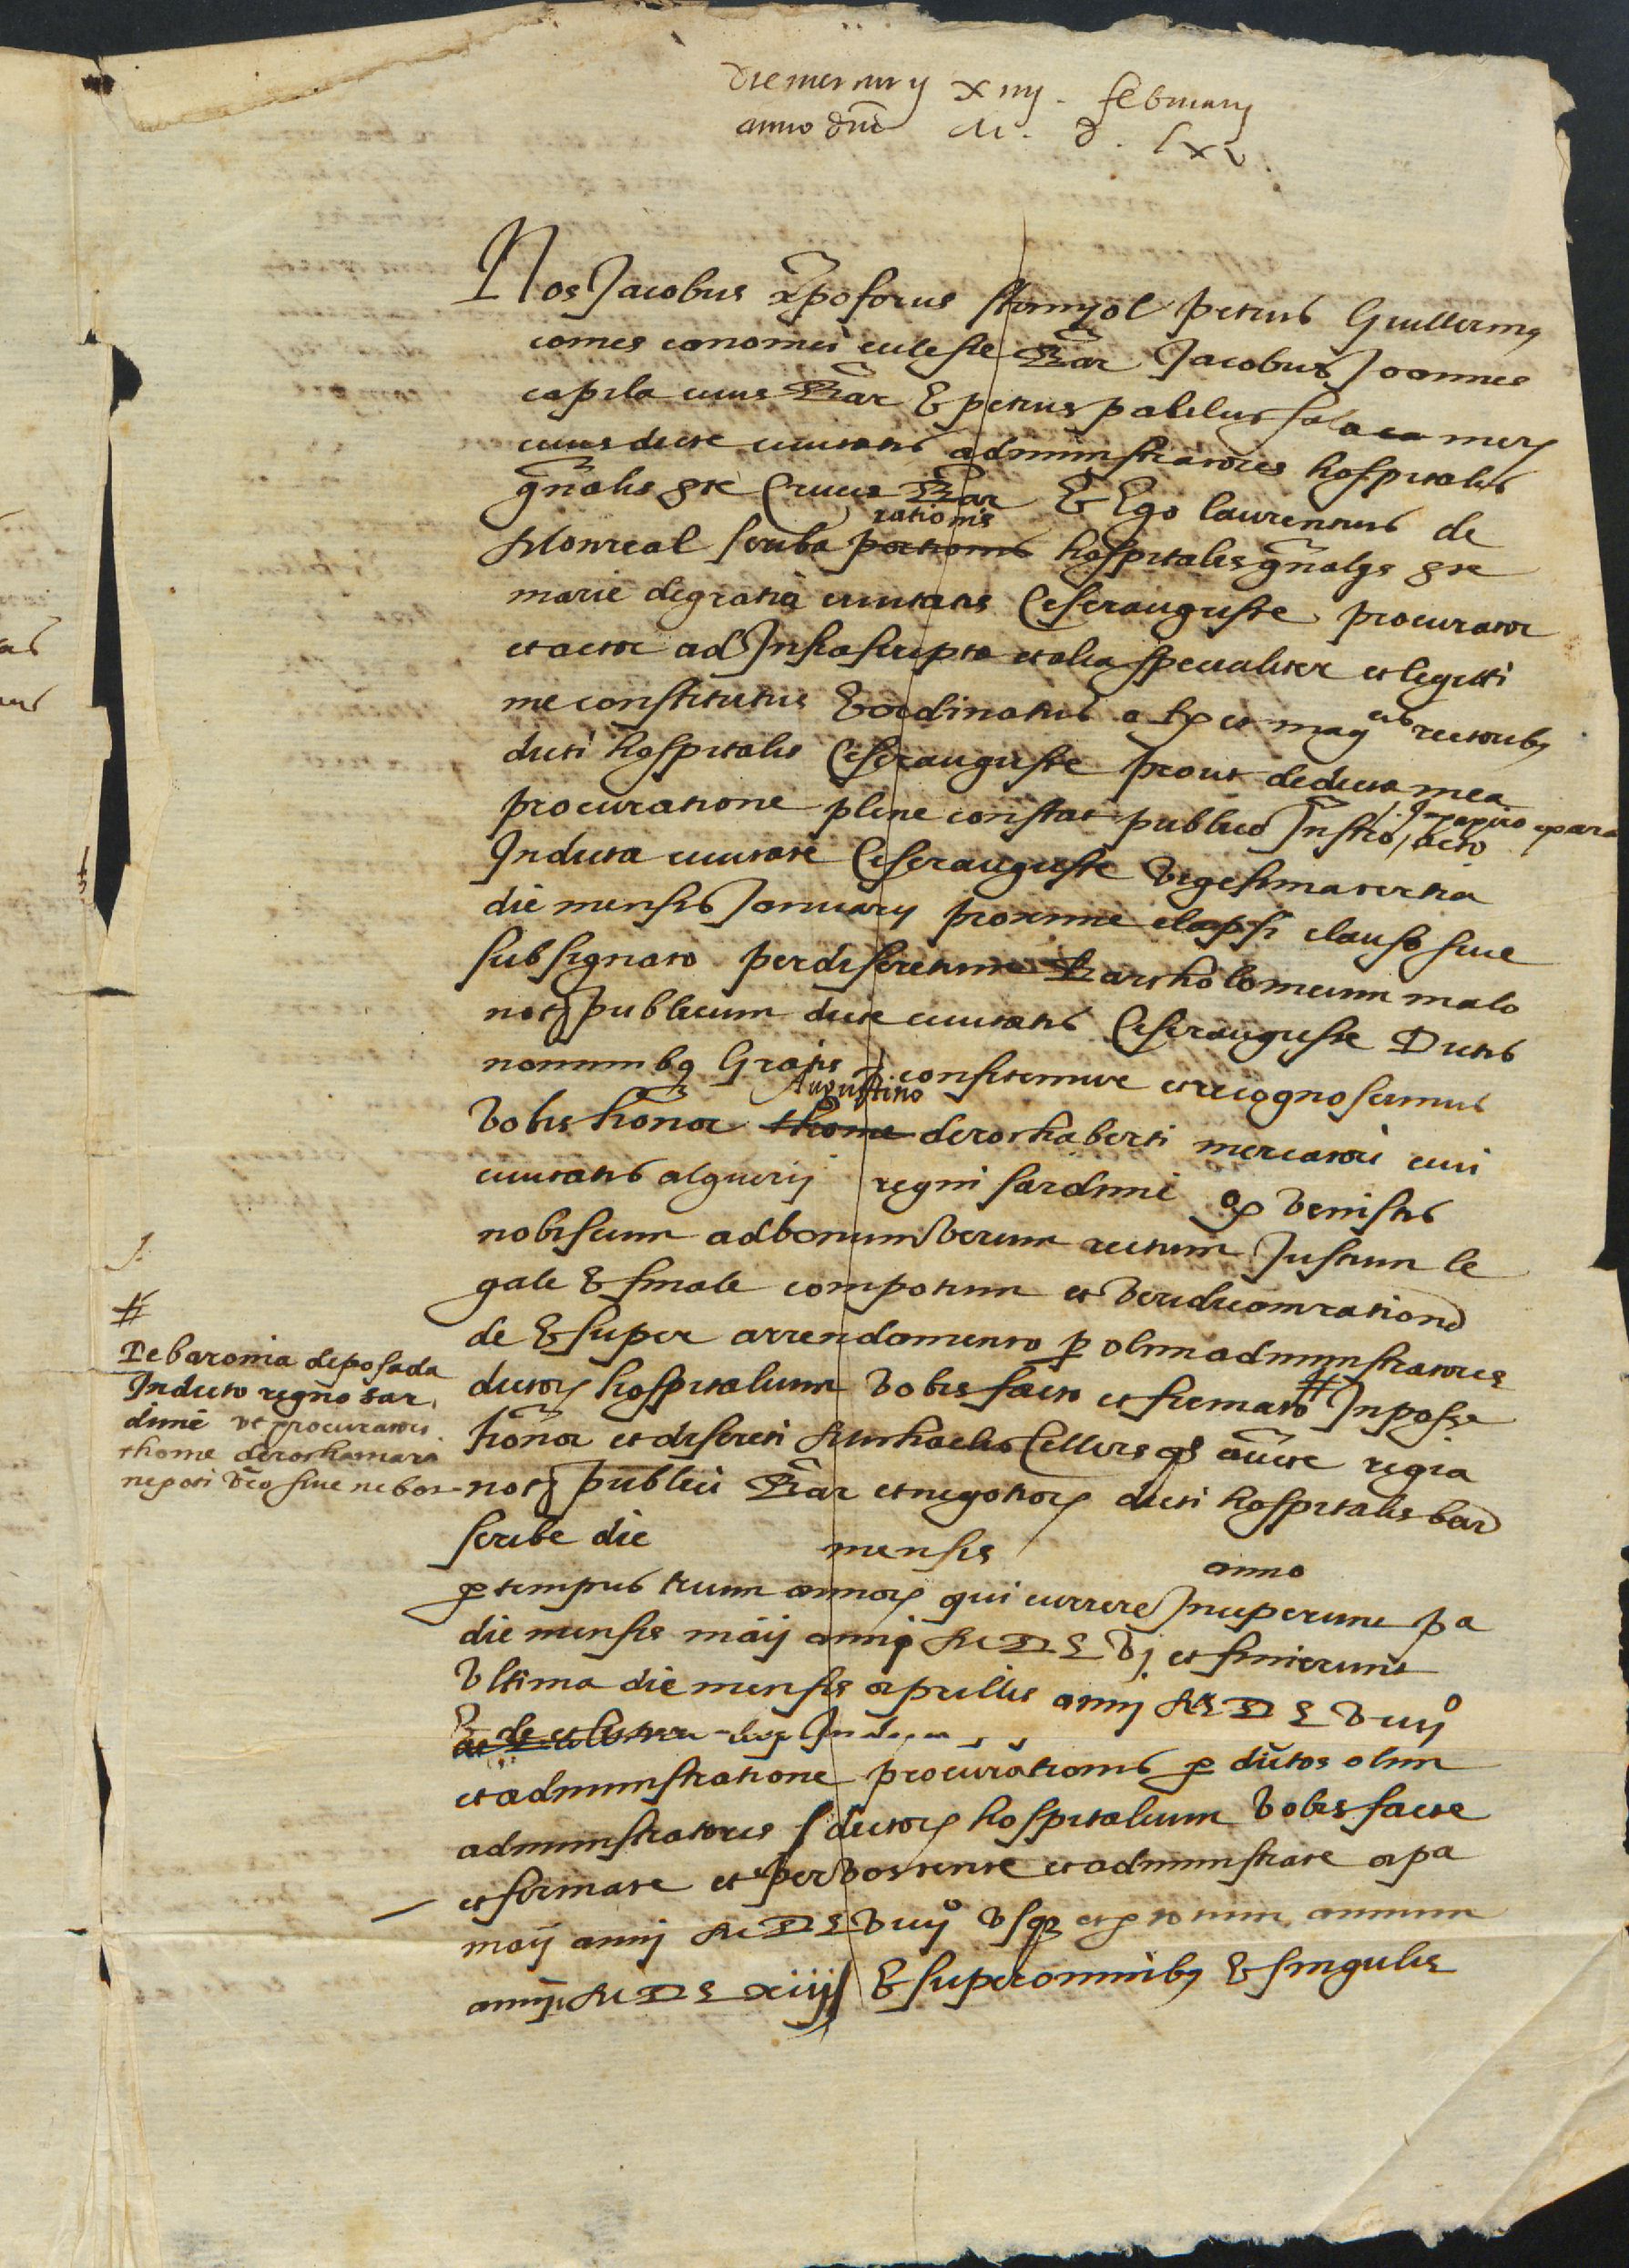 die mercurij xiiij. februarij
anno dñi M. D. lxv.
Nos Jacobus xp̃oforus stanyol petrus Guillermꝰ
comes canonici ecclesie Bar̃ Jacobus Joannes
capila civis Bar̃ & petrus pabilus sala merꝝ
civis dicte civitatis administratores hospitalis
gñalis ste Crucis Bar̃ & Ego laurentius de
Monreal scriba portionis rationis hospitalis gñalis ste
marie de gratia civitatis Ceserauguste procurator
et actor ad Infrascripta et alia specialiter et legitti
me constitutus & ordinatus a et magcis rectoribꝫ
dicti hospitalis Cesarauguste prout de dicta mea
procuratione plene constat publico Instr̃o, acto
In dicta civitate Cesarauguste vigesima tertia
die mensis Januarij proxime elapsi clauso sive
subsignato per discretum Bartholomeum malo
notꝫ publicum dicte civitatis Cesarauguste Dictis
nominibꝫ Gratis & confitemur et recognoscimus
vobis honor̃ thome Augustino de rochaberti mercatori civi
civitatis alguerij regni sardinie qꝫ venistis
nobiscum ad bonum verum rectum Justum le
gale & finale compotum et veridicam rationẽ
de & super arrendamento ꝑ olim administratores
dictoꝝ hospitalium vobis facto et firmato # In posse
honor̃ et discreti Michaelis Cellers qᵒ aucte regia
notꝫ publici Bar̃ et negotioꝝ dicti hospitalis bar̃
scribe die mensis anno
ꝑ tempus trium annoꝝ qui currere Inceperunt pa
die mensis maij anni M D L vj et finierunt
vltima die mensis aprillis anni M D L viiijᵒ
et administratione procurationis ꝑ dictos olim
administratores dictoꝝ hospitalium vobis facte
et firmate et per vos tente et administrate a pa
maij anni M D L viiijᵒ vsqꝫ et ꝑ totum annum
anni M D L xiiij & super omnibꝫ & singulis
#
De baronia de posada
In dicto regno sar
dinie vt procuratori
thome de rochamara
nepoti vrõ sive nebot